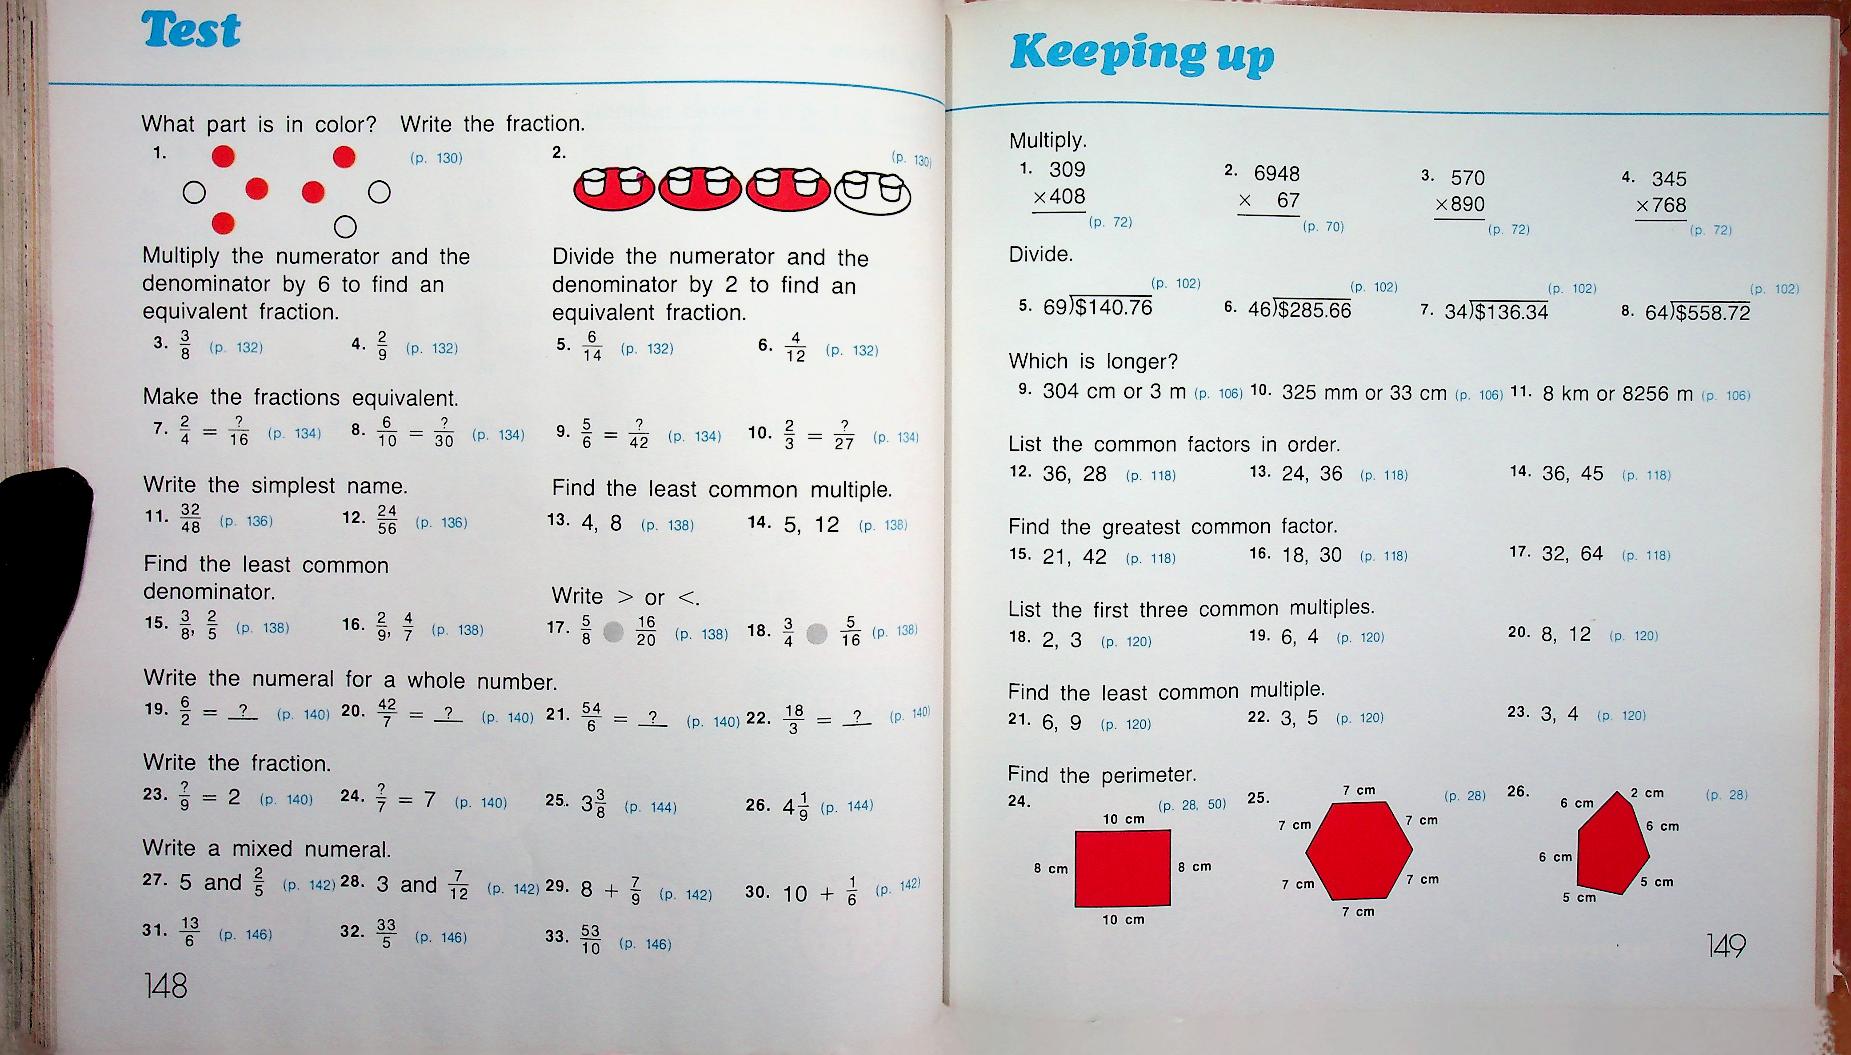 Test
What part is in color? Write the fraction.
1. (p. 130) 2. (p. 130)
Multiply the numerator and the
denominator by 6 to find an
equivalent fraction.
3. 3/8 (p. 132) 4. 2/9 (p. 132)
Divide the numerator and the
denominator by 2 to find an
equivalent fraction.
5. 6/14 (p. 132) 6. 4/12 (p. 132)
Make the fractions equivalent.
7. 2/4 = ?/16 (p. 134) 8. 6/10 = ?/30 (p. 134) 9. 5/6 = ?/42 (p. 134) 10. 2/3 = ?/27 (p. 134)
Write the simplest name.
11. 32/48 (p. 136) 12. 24/56 (p. 136)
Find the least common multiple.
13. 4, 8 (p. 138) 14. 5, 12 (p. 138)
Find the least common
denominator.
15. 3/8, 2/5 (p. 138) 16. 2/9, 4/7 (p. 138)
Write > or <.
17. 5/8 16/20 (p. 138) 18. 3/4 5/16 (p. 138)
Write the numeral for a whole number.
19. 6/2 = ? (p. 140) 20. 42/7 = ? (p. 140) 21. 54/6 = ? (p. 140) 22. 18/3 = ? (p. 140)
Write the fraction.
23. ?/9 = 2 (p. 140) 24. ?/7 = 7 (p. 140) 25. 3 3/8 (p. 144) 26. 4 1/9 (p. 144)
Write a mixed numeral.
27. 5 and 2/5 (p. 142) 28. 3 and 7/12 (p. 142) 29. 8 + 7/9 (p. 142) 30. 10 + 1/6 (p. 142)
31. 13/6 (p. 146) 32. 33/5 (p. 146) 33. 53/10 (p. 146)
148
Keeping up
Multiply.
1. 309 2. 6948 3. 570 4. 345
×408 × 67 ×890 ×768
(p. 72) (p. 70) (p. 72) (p. 72)
Divide.
(p. 102) (p. 102) (p. 102) (p. 102)
5. 69)$140.76 6. 46)$285.66 7. 34)$136.34 8. 64)$558.72
Which is longer?
9. 304 cm or 3 m (p. 106) 10. 325 mm or 33 cm (p. 106) 11. 8 km or 8256 m (p. 106)
List the common factors in order.
12. 36, 28 (p. 118) 13. 24, 36 (p. 118) 14. 36, 45 (p. 118)
Find the greatest common factor.
15. 21, 42 (p. 118) 16. 18, 30 (p. 118) 17. 32, 64 (p. 118)
List the first three common multiples.
18. 2, 3 (p. 120) 19. 6, 4 (p. 120) 20. 8, 12 (p. 120)
Find the least common multiple.
21. 6, 9 (p. 120) 22. 3, 5 (p. 120) 23. 3, 4 (p. 120)
Find the perimeter.
24. (p. 28, 50)
10 cm
8 cm 8 cm
10 cm
25. (p. 28)
7 cm
7 cm 7 cm
7 cm 7 cm
7 cm
26. (p. 28)
6 cm 2 cm
6 cm
6 cm
5 cm
5 cm
149